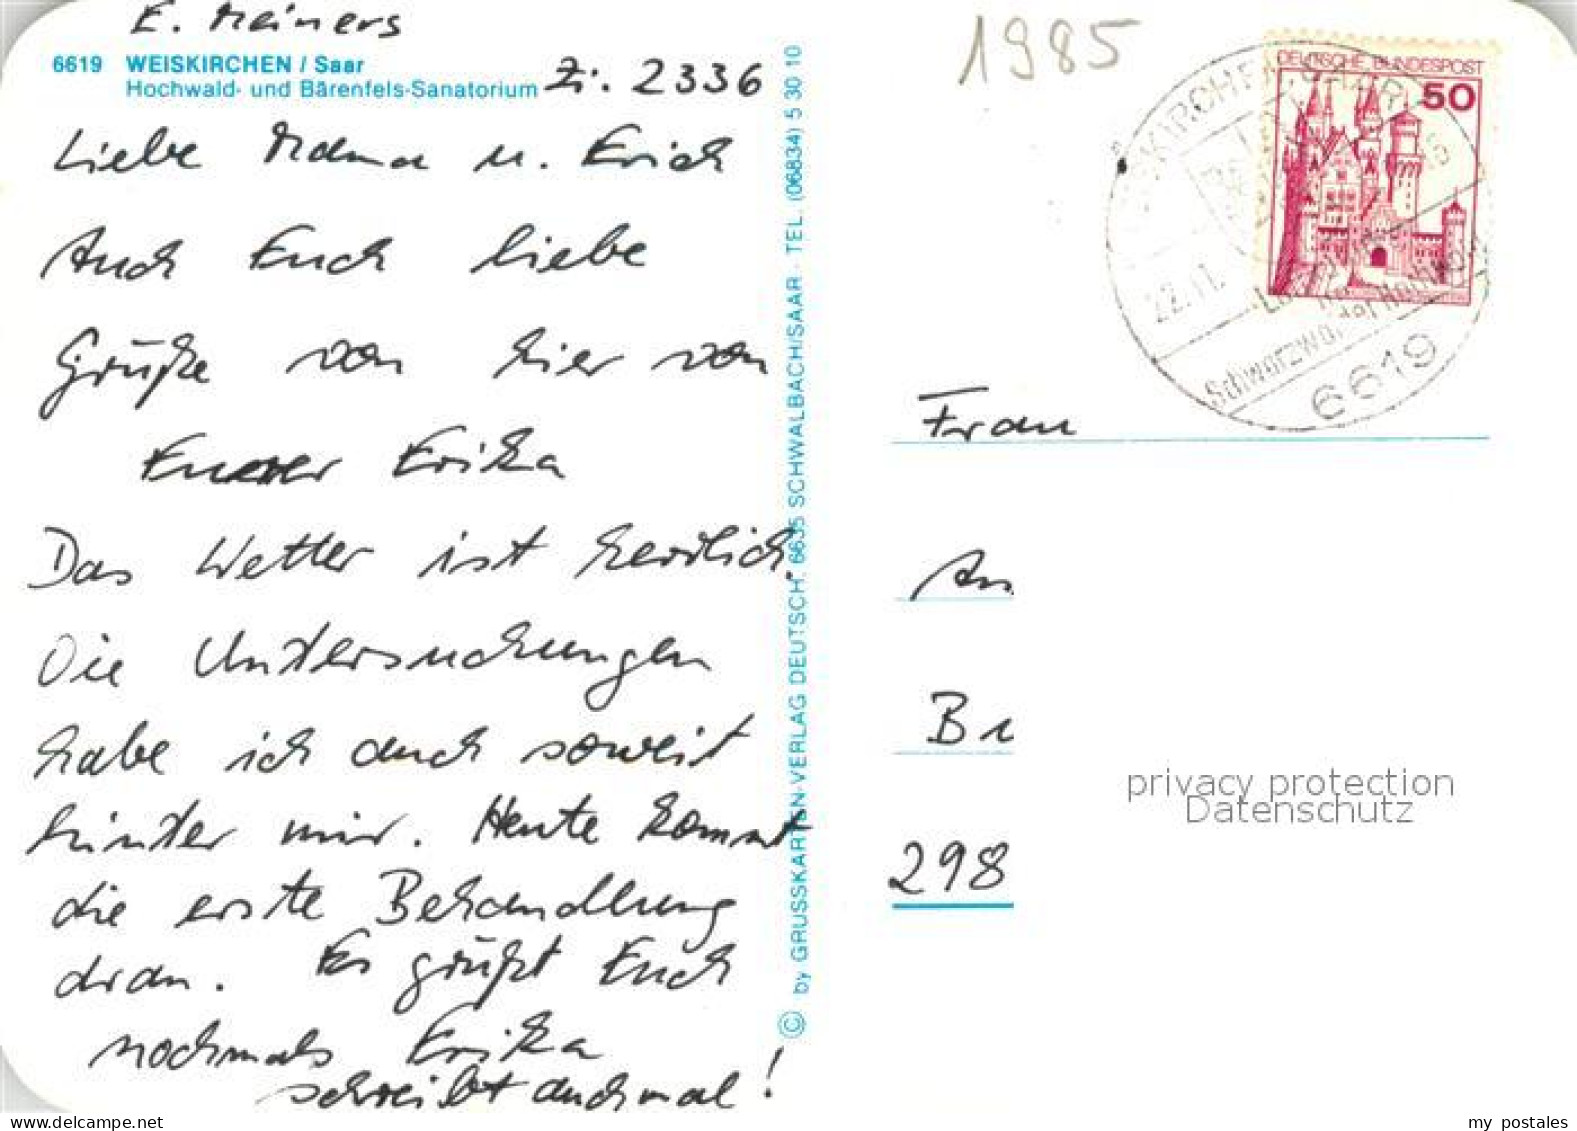 E. Meiners
6619 WEISKIRCHEN / Saar
Hochwald- und Bärenfels-Sanatorium Zi. 2336
Liebe Mama u. Erich
Auch Euch liebe
Grüße von hier von
Eurer Erika
Das Wetter ist herrlich.
Die Untersuchungen
habe ich auch soweit
hinter mir. Heute kommt
die erste Behandlung
dran. Es grüßt Euch
nochmals Erika
schreibt auchmal!
© by GRUSSKARTEN-VERLAG DEUTSCH, 6635 SCHWALBACH/SAAR · TEL. (06834) 5 30 10
1985
DEUTSCHE BUNDESPOST
50
22.11.
Schwarzw
6619
Frau
An
B
298
privacy protection
Datenschutz
my postales